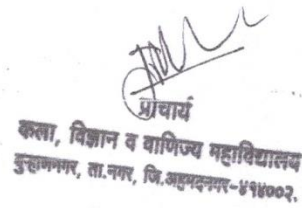 प्राचार्य
कला, विज्ञान व वाणिज्य महाविद्यालय
बुऱ्हाणनगर, ता.नगर, जि.अहमदनगर-४१४००२.